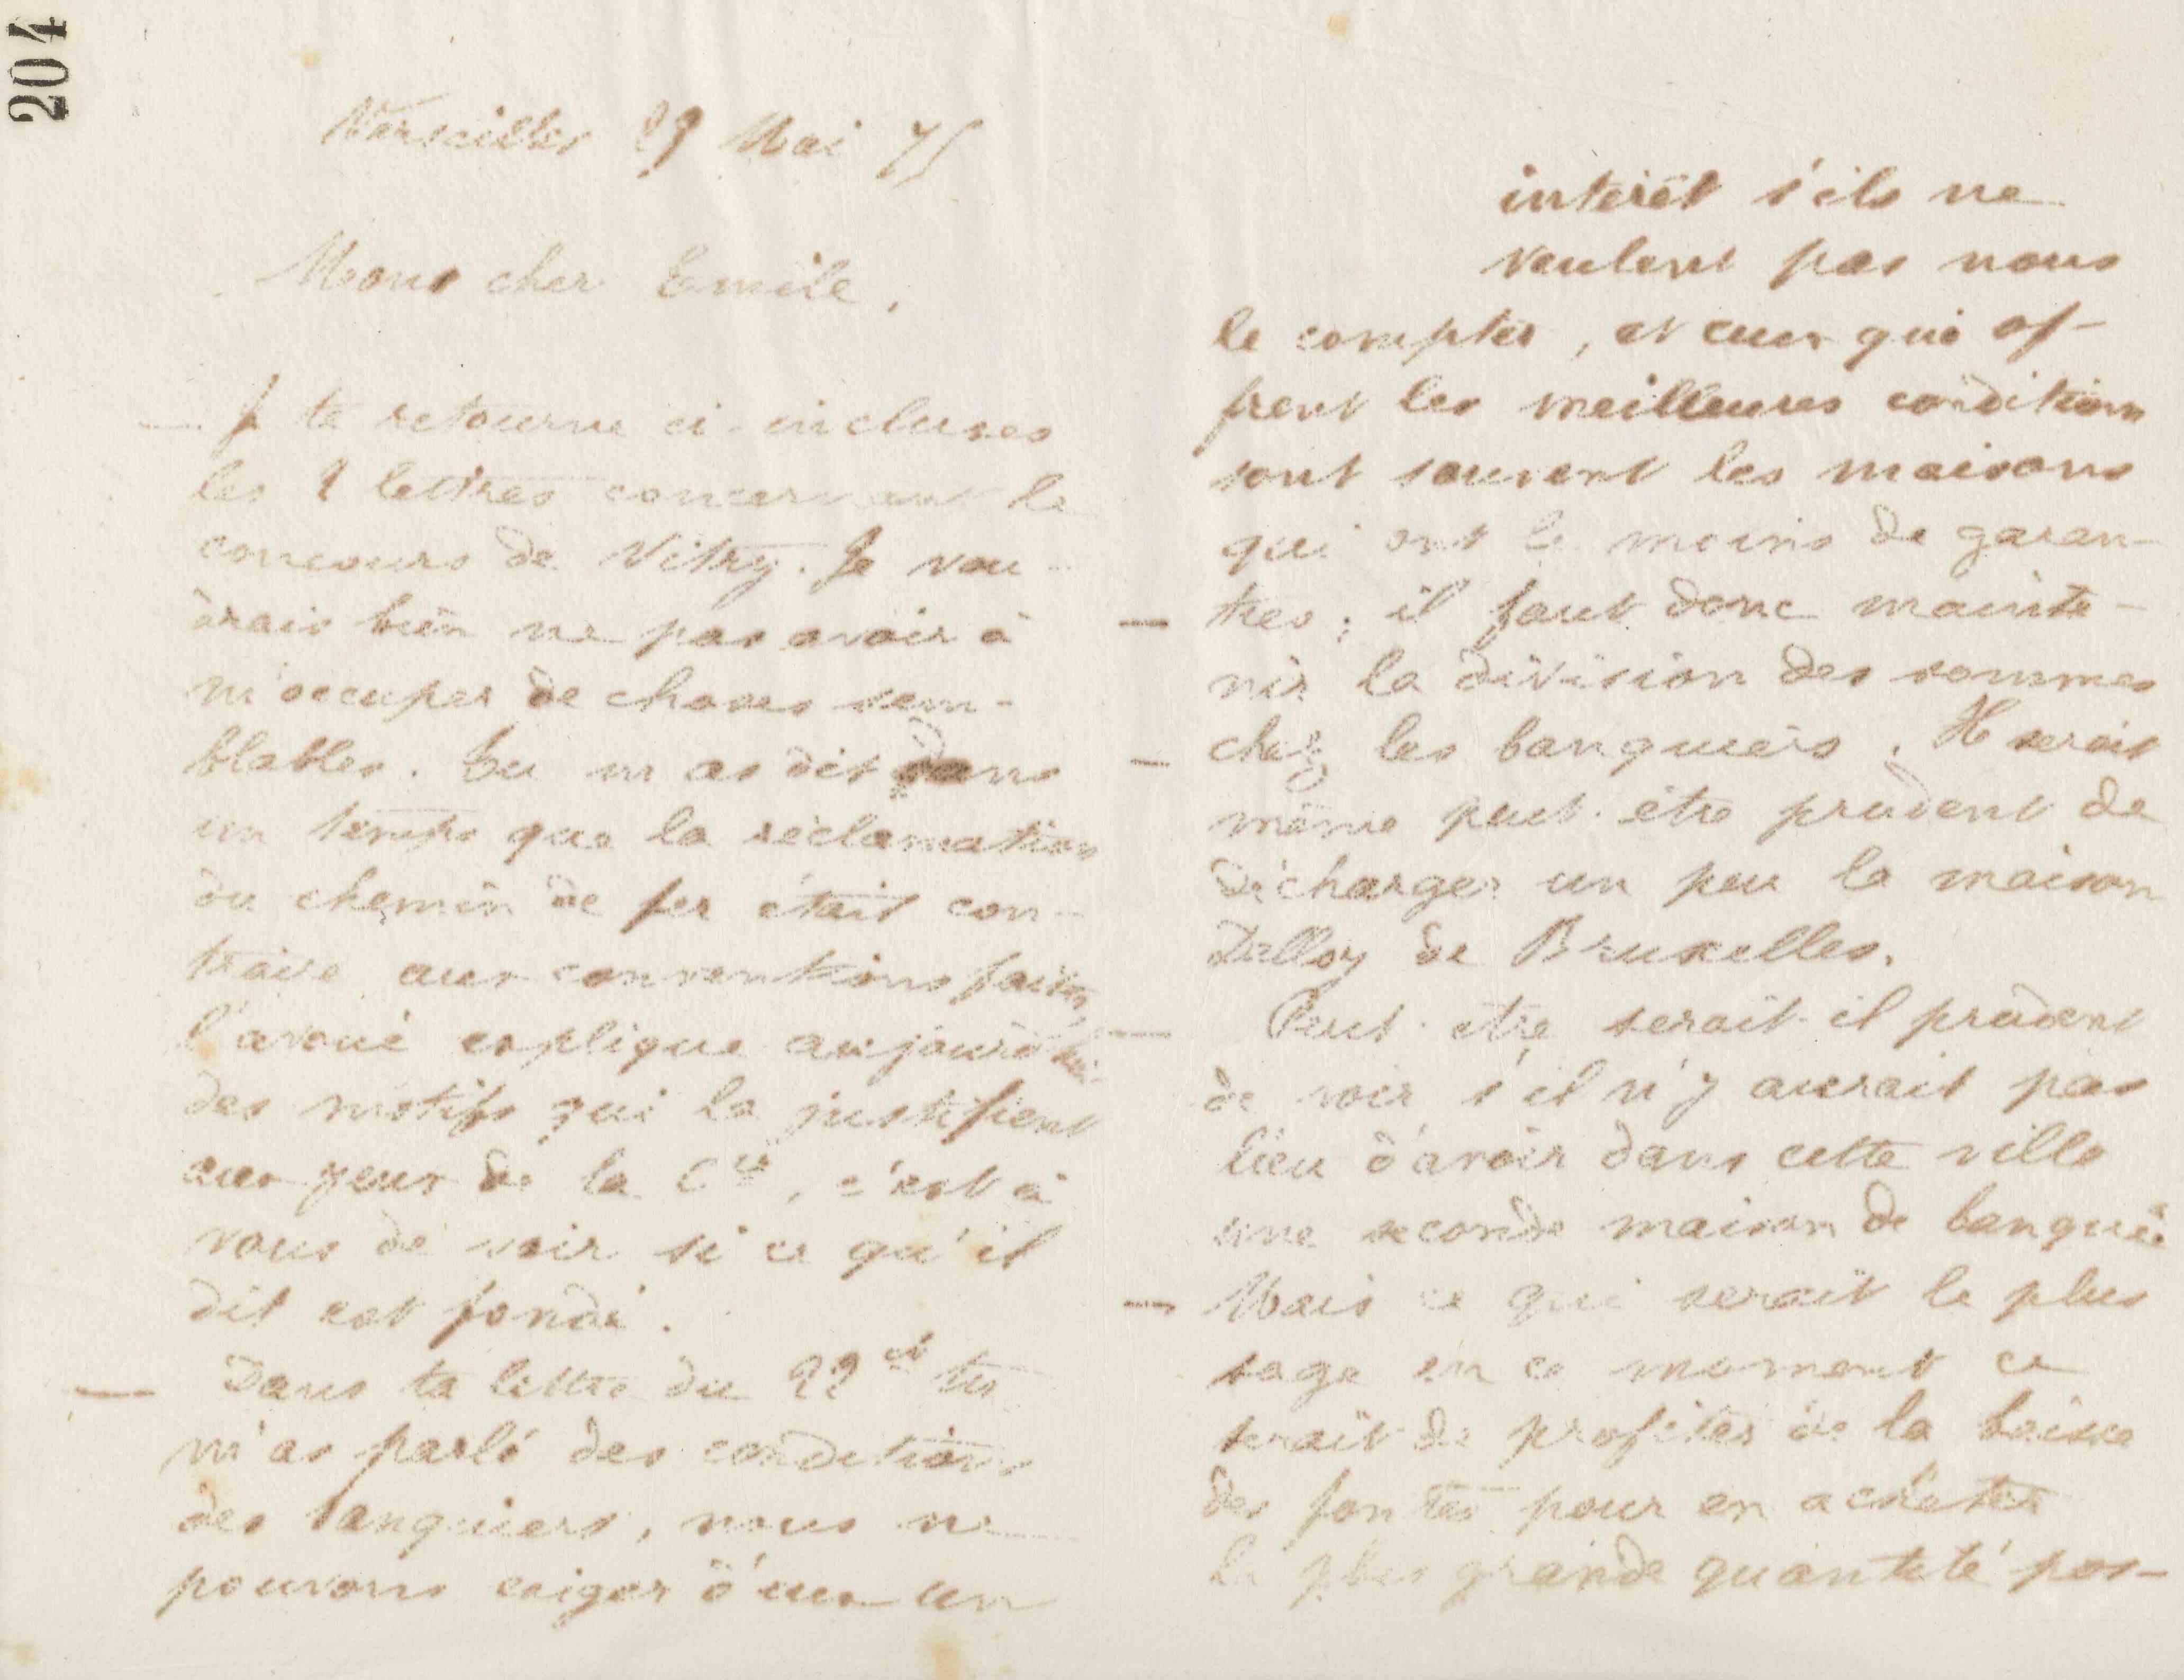 204
Versailles 29 Mai 75
Mon cher Emile,
— Je te retourne ci-incluses
les 2 lettres concernant le
concours de Vitry. Je vou-
drais bien ne pas avoir à
m'occuper de choses sem-
blables. Tu m'as dit dans
un temps que la réclamation
du chemin de fer était con-
traire aux conventions faites,
l'avoué explique aujourd'hui
des motifs qui la justifient
aux yeux de la Cie, c'est à
vous de voir si ce qu'il
dit est fondé.
— Dans ta lettre du 22 ct tu
m'as parlé des conditions
des banquiers, nous ne
pouvons exiger d'eux un
intérêt s'ils ne
veulent pas nous
le compter, et ceux qui of-
frent les meilleures conditions
sont souvent les maisons
qui ont le moins de garan-
— ties ; il faut donc mainte-
nir la division des sommes
— chez les banquiers. Il serait
même peut-être prudent de
décharger un peu la maison
Dalloy de Bruxelles.
— Peut-être serait-il prudent
de voir s'il n'y aurait pas
lieu d'avoir dans cette ville
une seconde maison de banque
— Mais ce qui serait le plus
sage en ce moment ce
serait de profiter de la baisse
des fontes pour en acheter
la plus grande quantité pos-